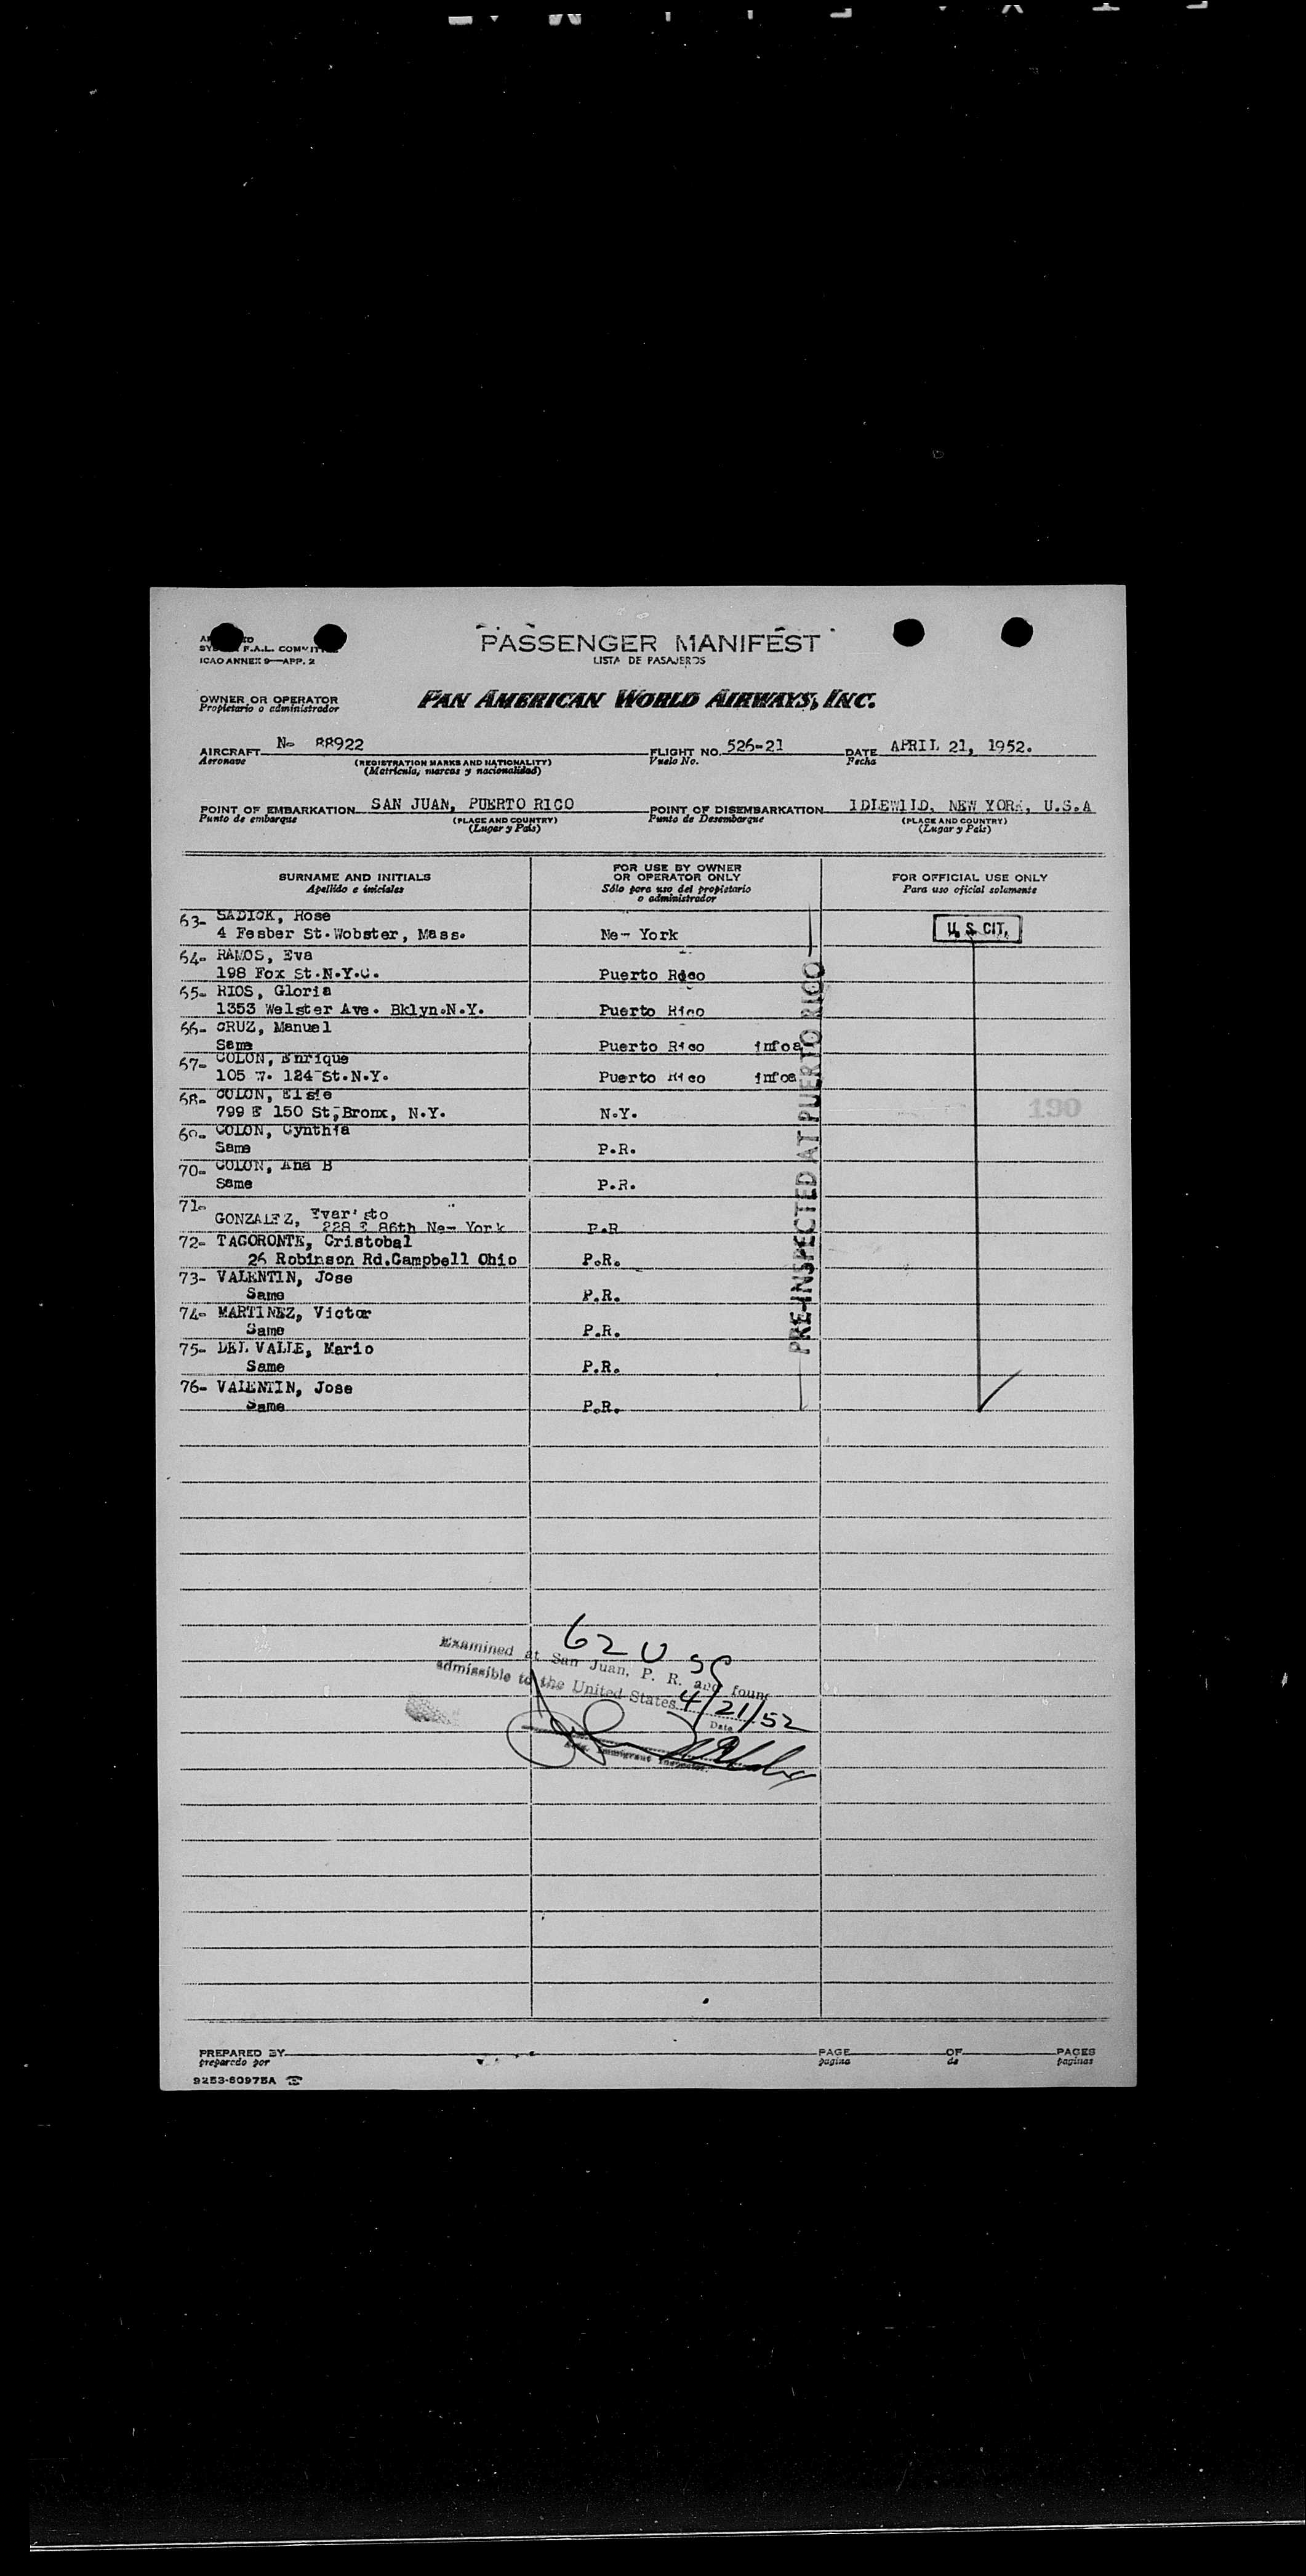 PASSENGER MANIFEST
LISTA DE PASAJEROS
F.A.L. COMMITTEE
ICAO ANNEX 9—APP. 2
OWNER OR OPERATOR
Propietario o administrador
PAN AMERICAN WORLD AIRWAYS, INC.
AIRCRAFT N- 88922 FLIGHT NO. 526-21 DATE APRIL 21, 1952.
Aeronave (REGISTRATION MARKS AND NATIONALITY) Vuelo No. Fecha
(Matrícula, marcas y nacionalidad)
POINT OF EMBARKATION SAN JUAN, PUERTO RICO POINT OF DISEMBARKATION IDLEWILD, NEW YORK, U.S.A
Punto de embarque (PLACE AND COUNTRY) Punto de Desembarque (PLACE AND COUNTRY)
(Lugar y País) (Lugar y País)
SURNAME AND INITIALS
Apellido e iniciales
FOR USE BY OWNER
OR OPERATOR ONLY
Sólo para uso del propietario
o administrador
FOR OFFICIAL USE ONLY
Para uso oficial solamente
63- SADICK, Rose
4 Fesber St.Wobster, Mass. Ne- York
U. S. CIT.
64- RAMOS, Eva
198 Fox St.N.Y.C. Puerto Rico
65- RIOS, Gloria
1353 Welster Ave. Bklyn.N.Y. Puerto Rico
66- CRUZ, Manuel
Same Puerto Rico infoa
67- COLON, Enrique
105 W. 124 St.N.Y. Puerto Rico infoa
68- COLON, Elsie
799 E 150 St, Bronx, N.Y. N.Y.
190
69- COLON, Cynthia
Same P.R.
70- COLON, Ana B
Same P.R.
71-
GONZALEZ, Evaristo
228 E 86th Ne- York P.R
72- TAGORONTE, Cristobal
26 Robinson Rd.Campbell Ohio P.R.
73- VALENTIN, Jose
Same P.R.
74- MARTINEZ, Victor
Same P.R.
75- DEL VALLE, Mario
Same P.R.
76- VALENTIN, Jose
Same P.R.
PRE-INSPECTED AT PUERTO RICO
62 U
Examined at San Juan, P. R. and found
admissible to the United States. 4/21/52
Date
Immigrant Inspector.
PREPARED BY PAGE OF PAGES
preparado por pagina de paginas
9253-60975A